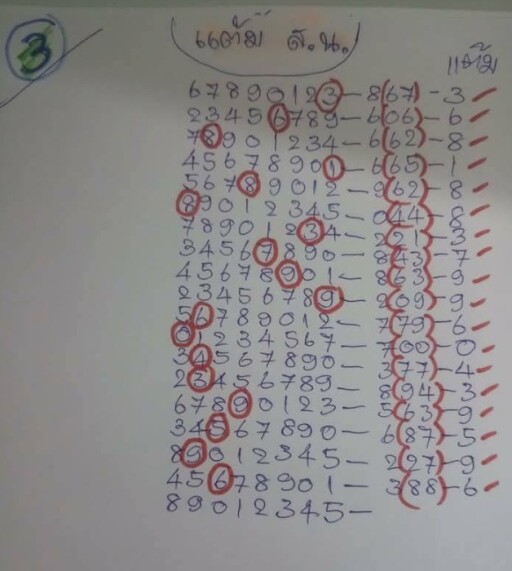 3
แต้ม ส.น.
แต้ม
67890123-867-3
23456789-606-6
78901234-662-8
45678901-665-1
56789012-962-8
89012345-044-8
78901234-221-3
34567890-843-7
45678901-863-9
23456789-209-9
56789012-779-6
01234567-700-0
34567890-377-4
23456789-894-3
67890123-563-9
34567890-687-5
89012345-297-9
45678901-388-6
89012345-